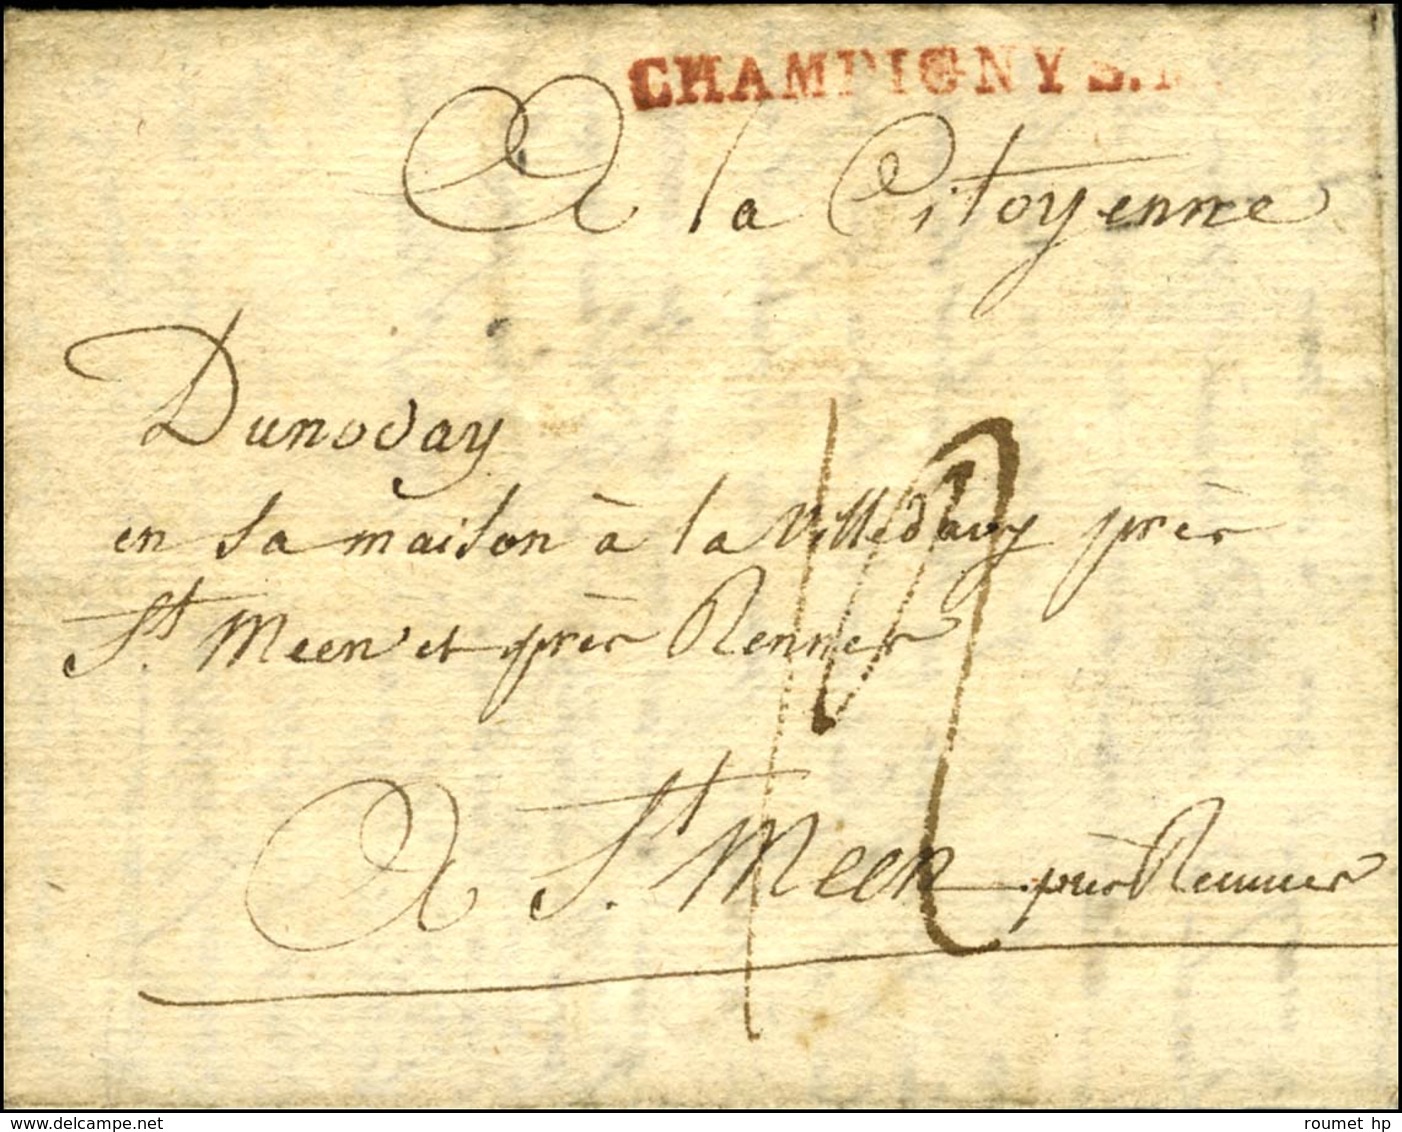 CHAMPIGNY S.
A la Citoyenne
Dunoday
en sa maison à la Villedavy près
St. Meen et près Rennes
A St. Meen près Rennes
roumet hp